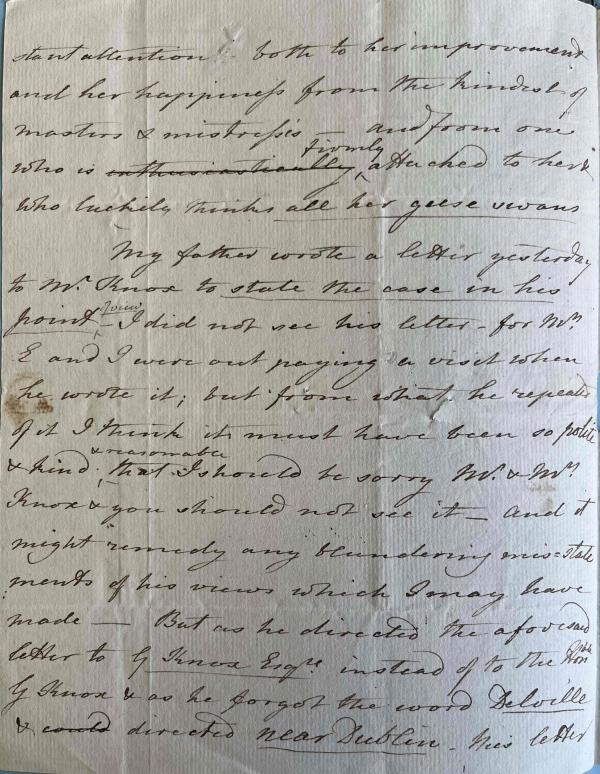 stant attention - both to her improvement
and her happiness from the kindest of
masters & mistresses — and from one
who is enthusiastically firmly attached to her &
who luckily thinks all her geese swans
My father wrote a letter yesterday
to Mr. Knox to state the case in his
point view - I did not see his letter - for Mrs
E and I were out paying a visit when
he wrote it; but from what he repeated
of it I think it must have been so polite
& kind & reasonable that I should be sorry Mr. & Mrs
Knox & you should not see it — and it
might remedy any blundering mis=state
ments of his views which I may have
made — But as he directed the aforesaid
letter to G Knox Esqre instead of to the Honble
G Knox & as he forgot the word Delville
& could directed near Dublin - his letter